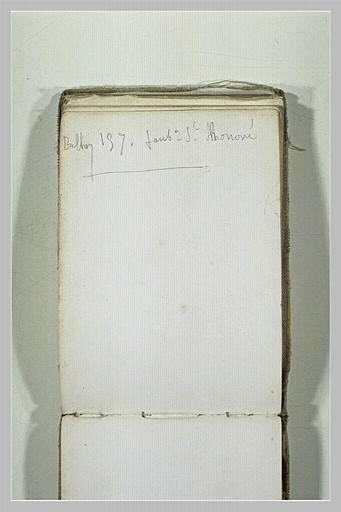 Baltoy 197. faub g St Honoré